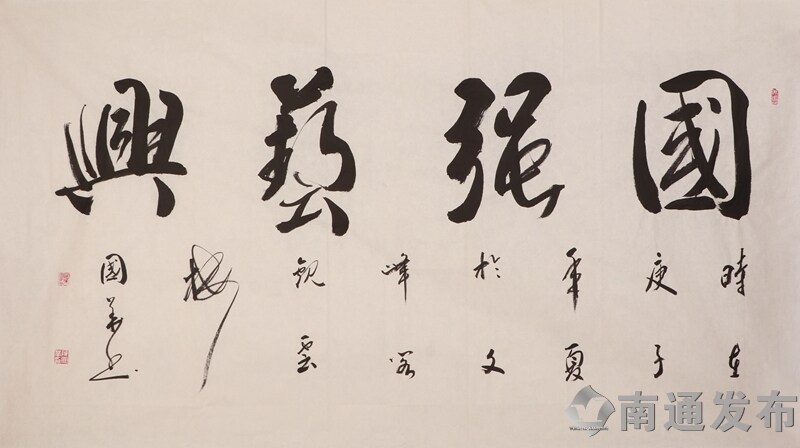 國强藝興
時在
庚子
年夏
於文
峰
觀雲
國
书
南通发布